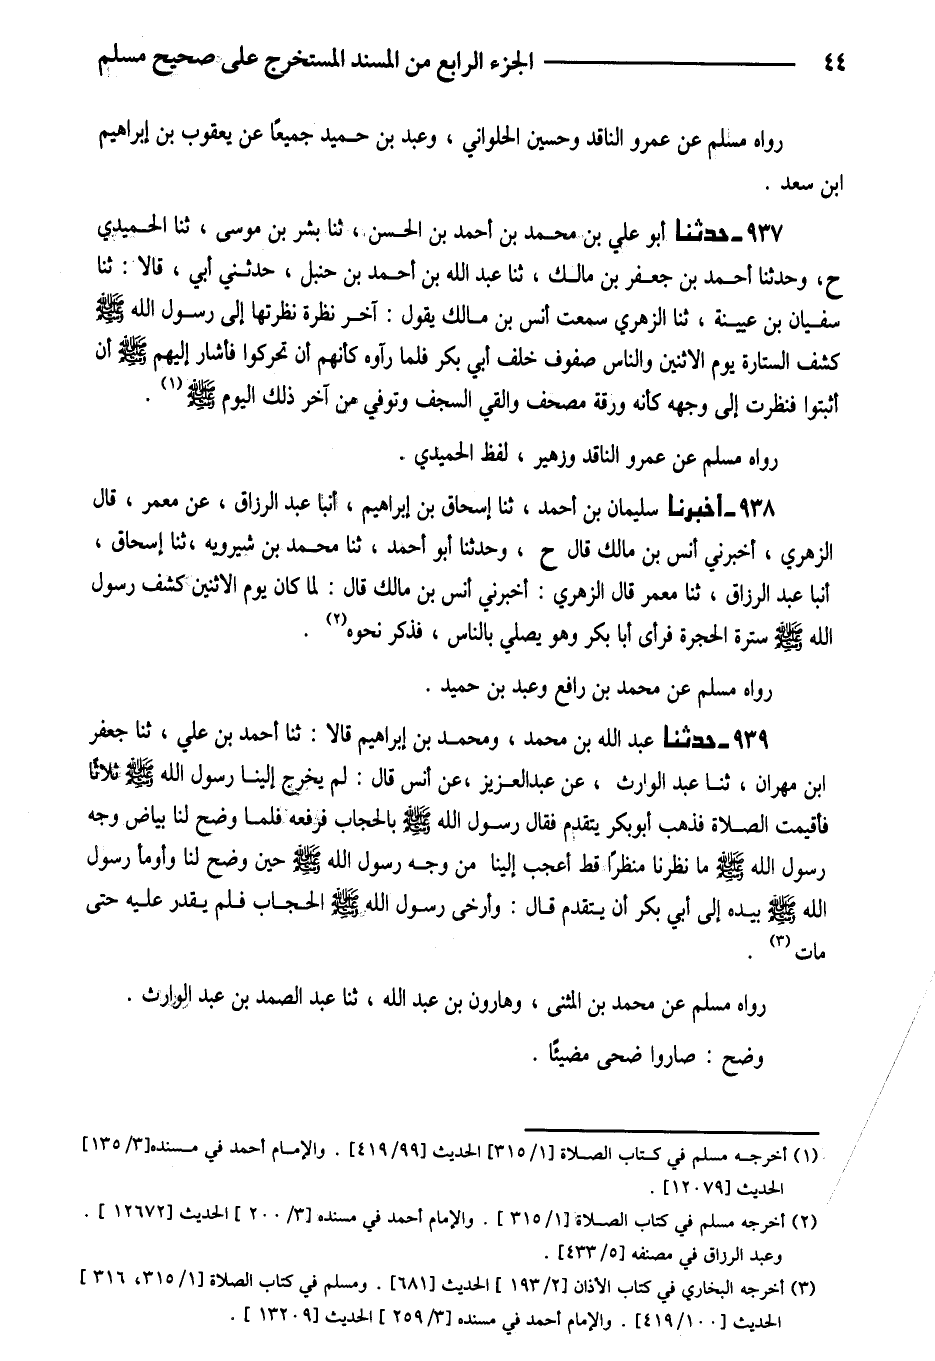 ٤٤ الجزء الرابع من المسند المستخرج على صحيح مسلم
رواه مسلم عن عمرو الناقد وحسين الحلواني ، وعبد بن حميد جميعًا عن يعقوب بن إبراهيم
ابن سعد .
٩٣٧ـ حدثنا أبو علي بن محمد بن أحمد بن الحسن ، ثنا بشر بن موسى ، ثنا الحميدي
ح، وحدثنا أحمد بن جعفر بن مالك ، ثنا عبد الله بن أحمد بن حنبل ، حدثني أبي ، قالا : ثنا
سفيان بن عيينة ، ثنا الزهري سمعت أنس بن مالك يقول : آخر نظرة نظرتها إلى رسول الله ﷺ
كشف الستارة يوم الاثنين والناس صفوف خلف أبي بكر فلما رآوه كأنهم أن تحركوا فأشار إليهم ﷺ أن
أثبتوا فنظرت إلى وجهه كأنه ورقة مصحف والقي السجف وتوفي من آخر ذلك اليوم ﷺ (١) .
رواه مسلم عن عمرو الناقد وزهير ، لفظ الحميدي .
٩٣٨ـ أخبرنا سليمان بن أحمد ، ثنا إسحاق بن إبراهيم ، أنبا عبد الرزاق ، عن معمر ، قال
الزهري ، أخبرني أنس بن مالك قال ح ، وحدثنا أبو أحمد ، ثنا محمد بن شيرويه ،ثنا إسحاق ،
أنبا عبد الرزاق ، ثنا معمر قال الزهري : أخبرني أنس بن مالك قال : لما كان يوم الاثنين كشف رسول
الله ﷺ سترة الحجرة فرأى أبا بكر وهو يصلي بالناس ، فذكر نحوه(٢) .
رواه مسلم عن محمد بن رافع وعبد بن حميد .
٩٣٩ـ حدثنا عبد الله بن محمد ، ومحمد بن إبراهيم قالا : ثنا أحمد بن علي ، ثنا جعفر
ابن مهران ، ثنا عبد الوارث ، عن عبدالعزيز ،عن أنس قال : لم يخرج إلينا رسول الله ﷺ ثلاثًا
فأقيمت الصلاة فذهب أبوبكر يتقدم فقال رسول الله ﷺ بالحجاب فرفعه فلما وضح لنا بياض وجه
رسول الله ﷺ ما نظرنا منظرًا قط أعجب إلينا من وجه رسول الله ﷺ حين وضح لنا وأومأ رسول
الله ﷺ بيده إلى أبي بكر أن يتقدم قال : وأرخى رسول الله ﷺ الحجاب فلم يقدر عليه حتى
مات (٣) .
رواه مسلم عن محمد بن المثنى ، وهارون بن عبد الله ، ثنا عبد الصمد بن عبد الوارث .
وضح : صاروا ضحى مضيئًا .
(١) أخرجه مسلم في كتاب الصلاة [٣١٥/١] الحديث [٤١٩/٩٩] . والإمام أحمد في مسنده[١٣٥/٣]
الحديث [١٢٠٧٩] .
(٢) أخرجه مسلم في كتاب الصلاة [٣١٥/١ ] . والإمام أحمد في مسنده [٢٠٠/٣ ] الحديث [١٢٦٧٢ ] .
وعبد الرزاق في مصنفه [٤٣٣/٥] .
(٣) أخرجه البخاري في كتاب الأذان [١٩٣/٢ ] الحديث [٦٨١] . ومسلم في كتاب الصلاة [٣١٥/١، ٣١٦ ]
الحديث [٤١٩/١٠٠] . والإمام أحمد في مسنده [٢٥٩/٣ ] الحديث [١٣٢٠٩ ] .